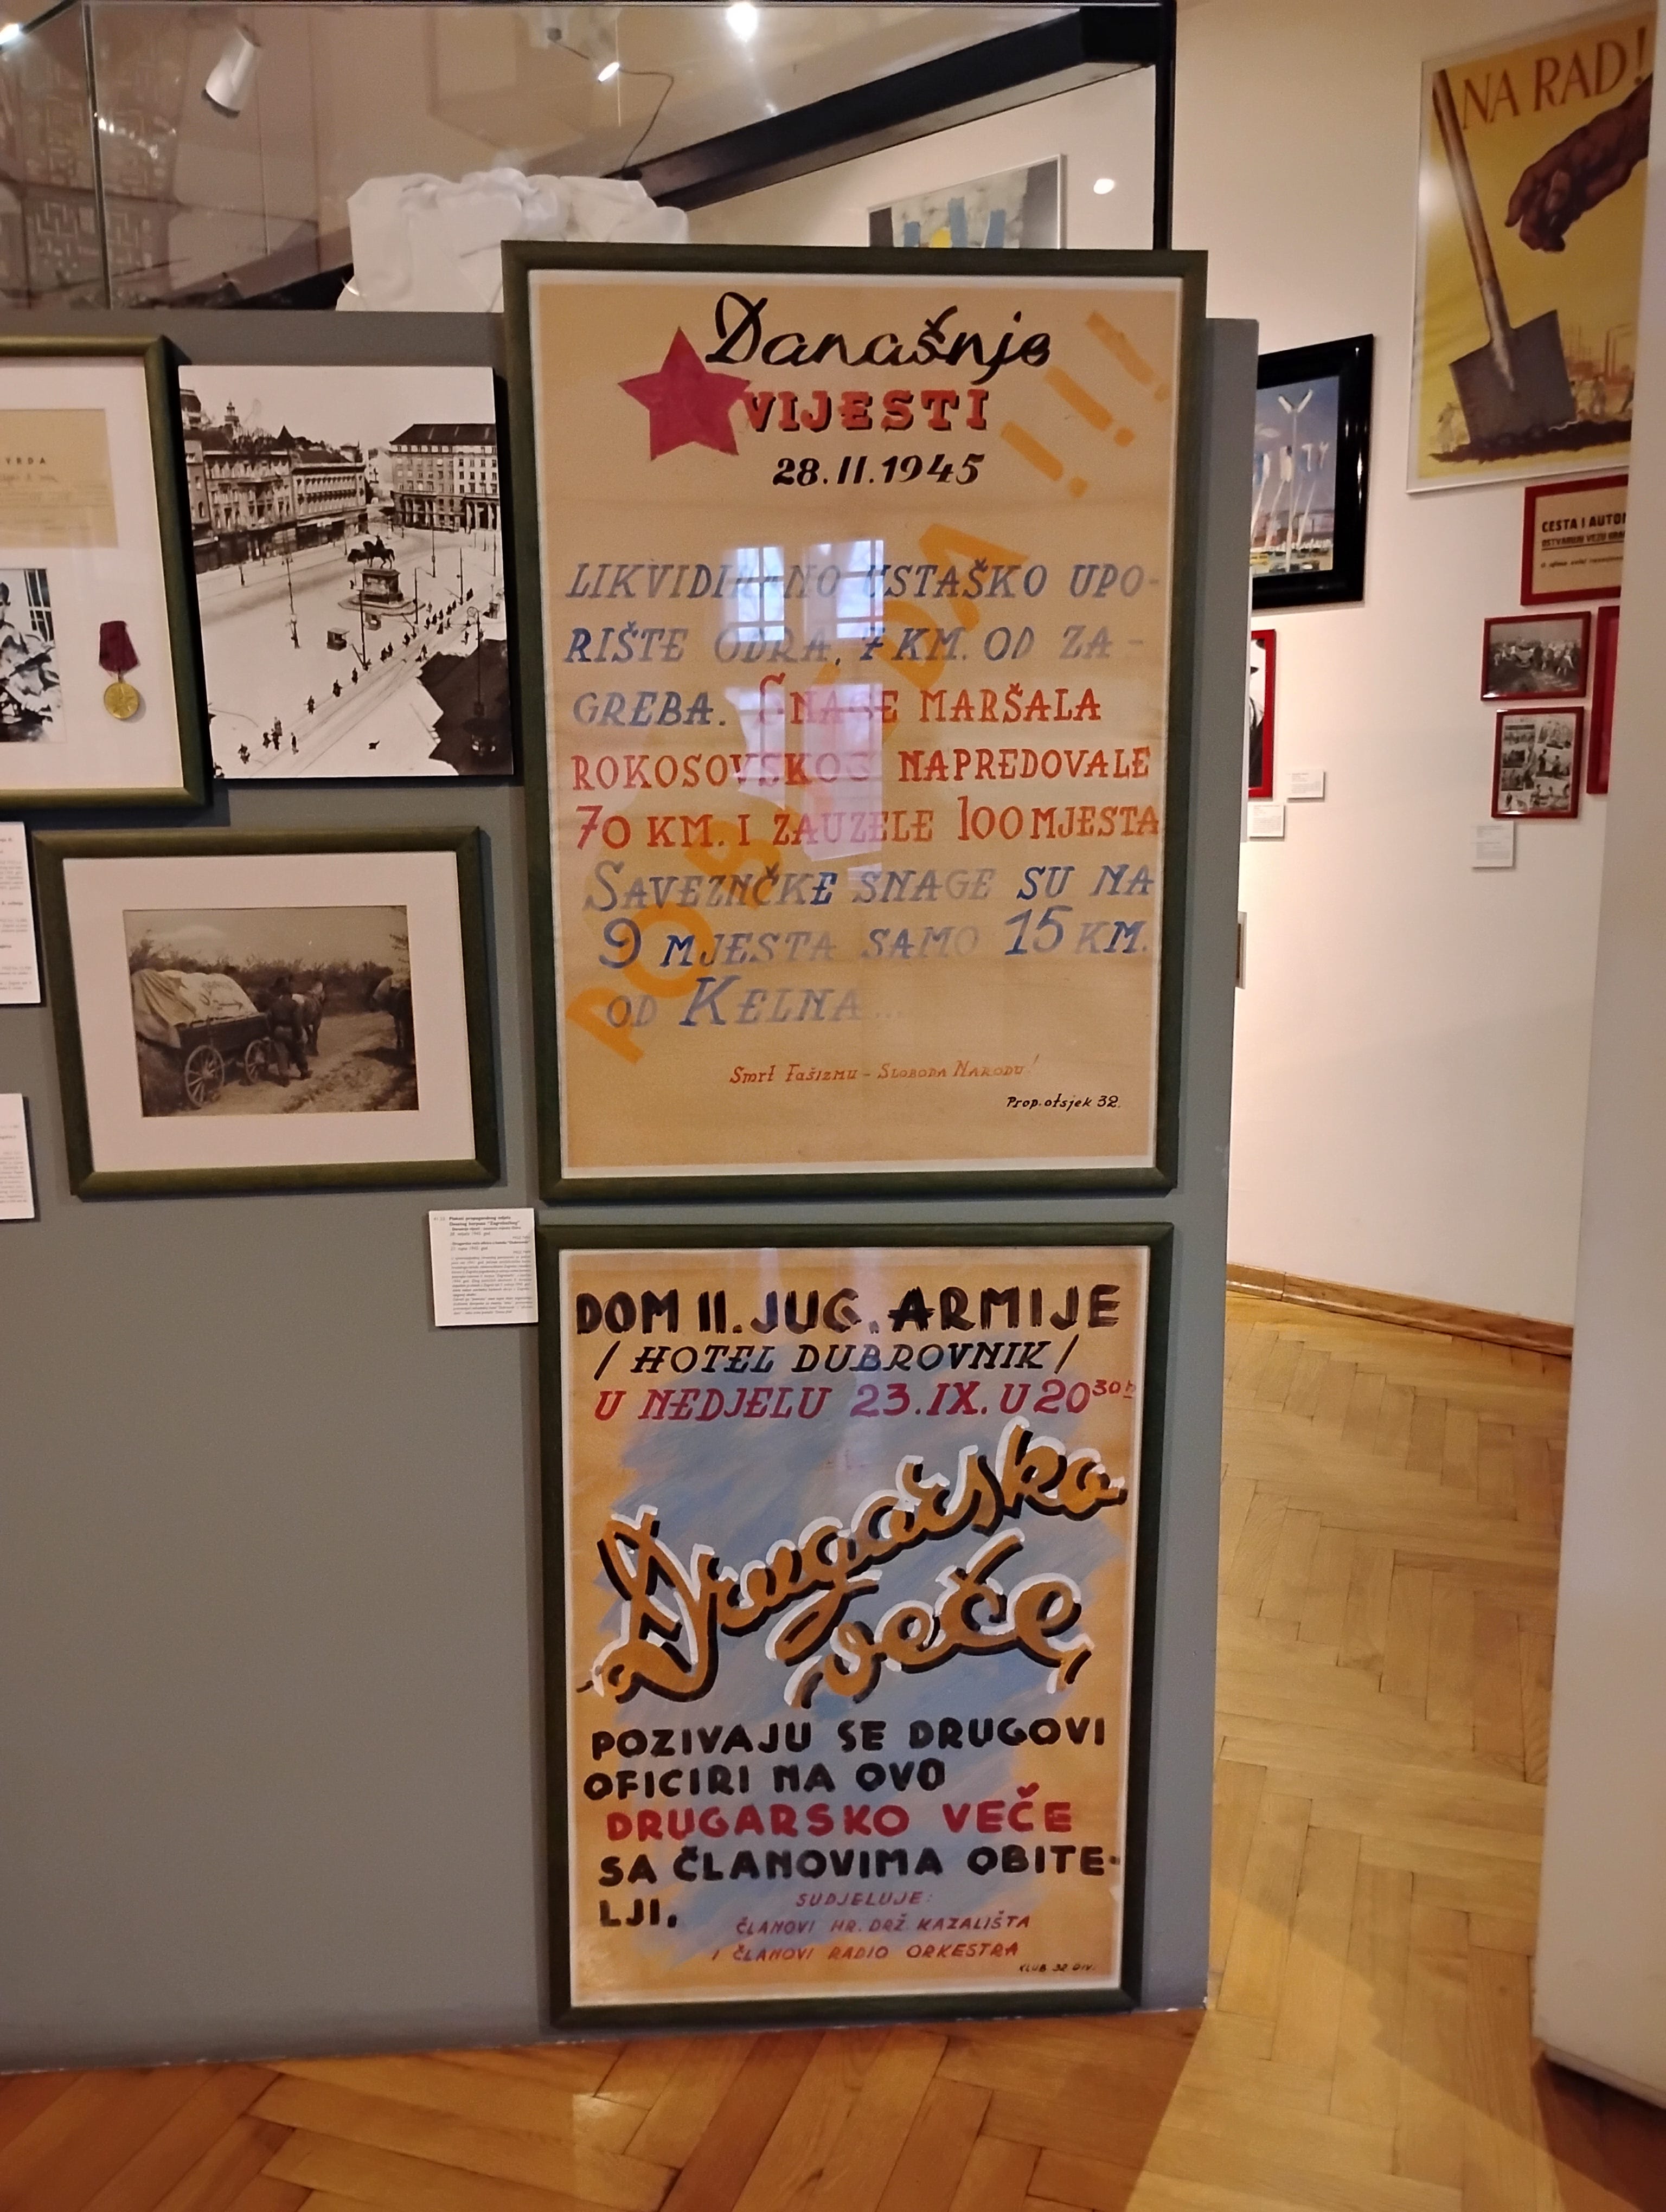 NA RAD!
Današnje
VIJESTI
28.II.1945
!!!
POBJEDA
LIKVIDIRANO USTAŠKO UPO-
RIŠTE ODRA, 7 KM. OD ZA-
GREBA. SNAGE MARŠALA
ROKOSOVSKOG NAPREDOVALE
70 KM. I ZAUZELE 100 MJESTA
SAVEZNČKE SNAGE SU NA
9 MJESTA SAMO 15 KM.
OD KELNA...
Smrt Fašizmu - Sloboda Narodu!
Prop. otsjek 32.
CESTA I
DOM II. JUG. ARMIJE
/ HOTEL DUBROVNIK /
U NEDJELU 23.IX. U 20 30 h
Drugarsko
veče,
POZIVAJU SE DRUGOVI
OFICIRI NA OVO
DRUGARSKO VEČE
SA ČLANOVIMA OBITE-
LJI.
SUDJELUJE:
ČLANOVI HR. DRŽ KAZALIŠTA
I ČLANOVI RADIO ORKESTRA
KLUB 32 DIV.